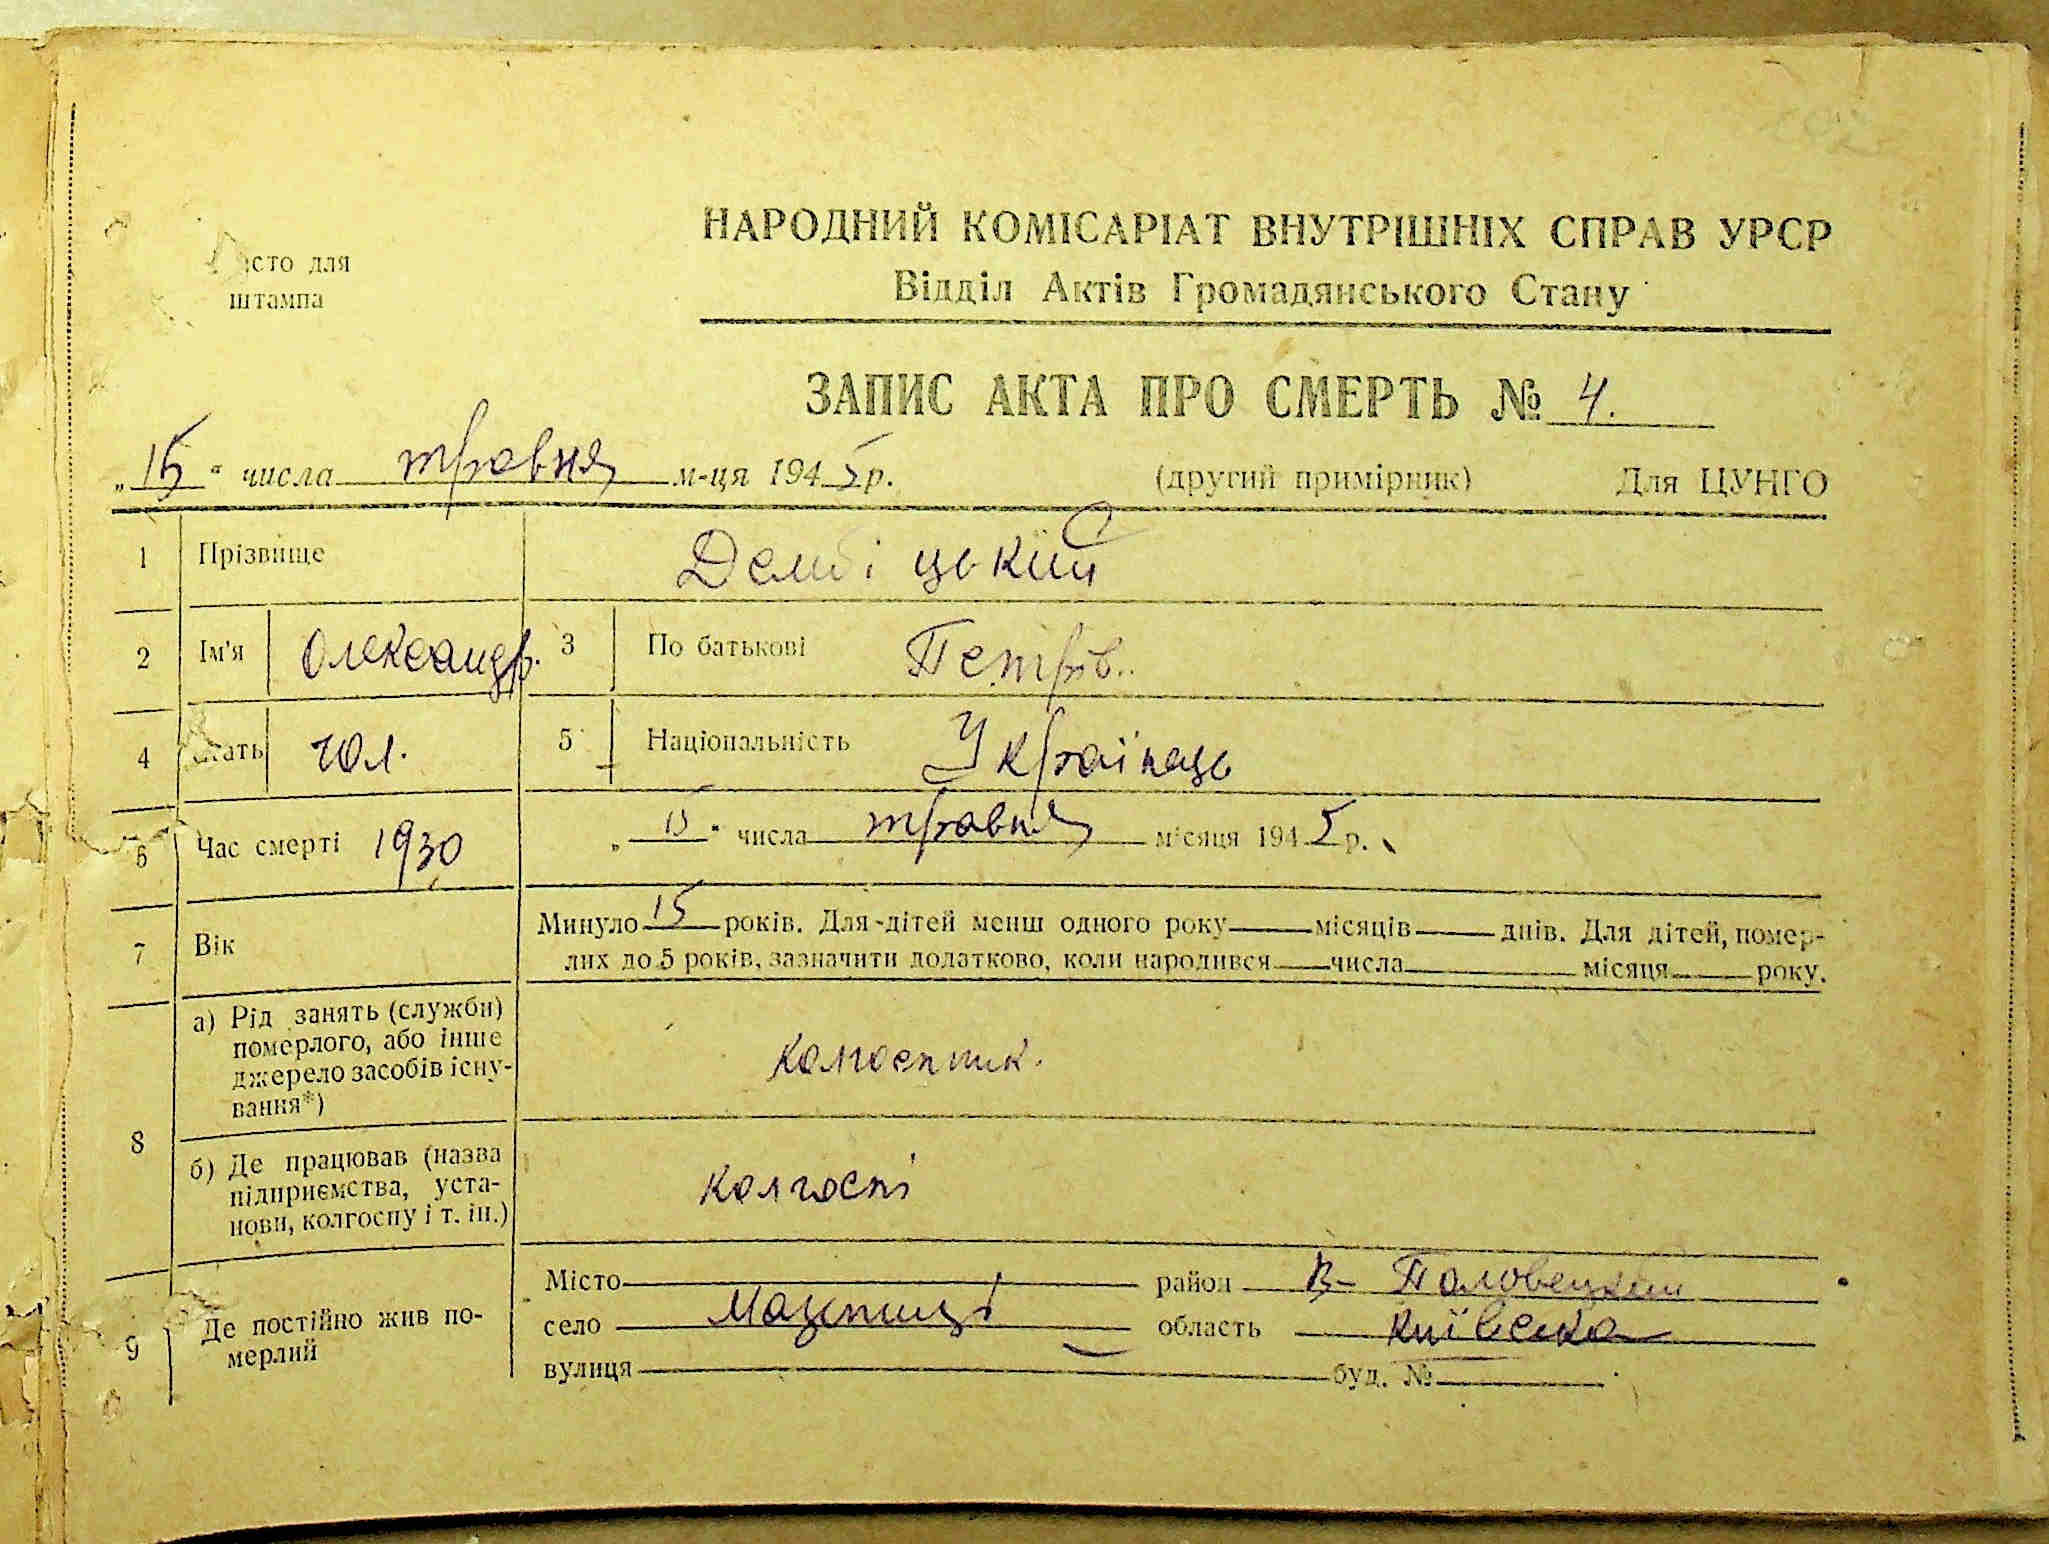 Місто для
штампа
НАРОДНИЙ КОМІСАРІАТ ВНУТРІШНІХ СПРАВ УРСР
Відділ Актів Громадянського Стану
ЗАПИС АКТА ПРО СМЕРТЬ № 4.
„15“ числа травня м-ця 1945 р. (другий примірник) Для ЦУНГО
1 Прізвище Дембіцький
2 Ім'я Олександр. 3 По батькові Петров..
4 Стать чол. 5 Національність Українець
6 Час смерті 1930 „15“ числа травня місяця 1945 р.
7 Вік Минуло 15 років. Для дітей менш одного року — місяців — днів. Для дітей, помер-
лих до 5 років, зазначити додатково, коли народився — числа — місяця — року.
8 а) Рід занять (служби)
померлого, або інше
джерело засобів існу-
вання*)
колгоспник.
б) Де працював (назва
підприємства, уста-
нови, колгоспу і т. ін.)
колгоспі
9 Де постійно жив по-
мерлий
Місто район В-Половецький
село Мацківці область Київська
вулиця буд. №